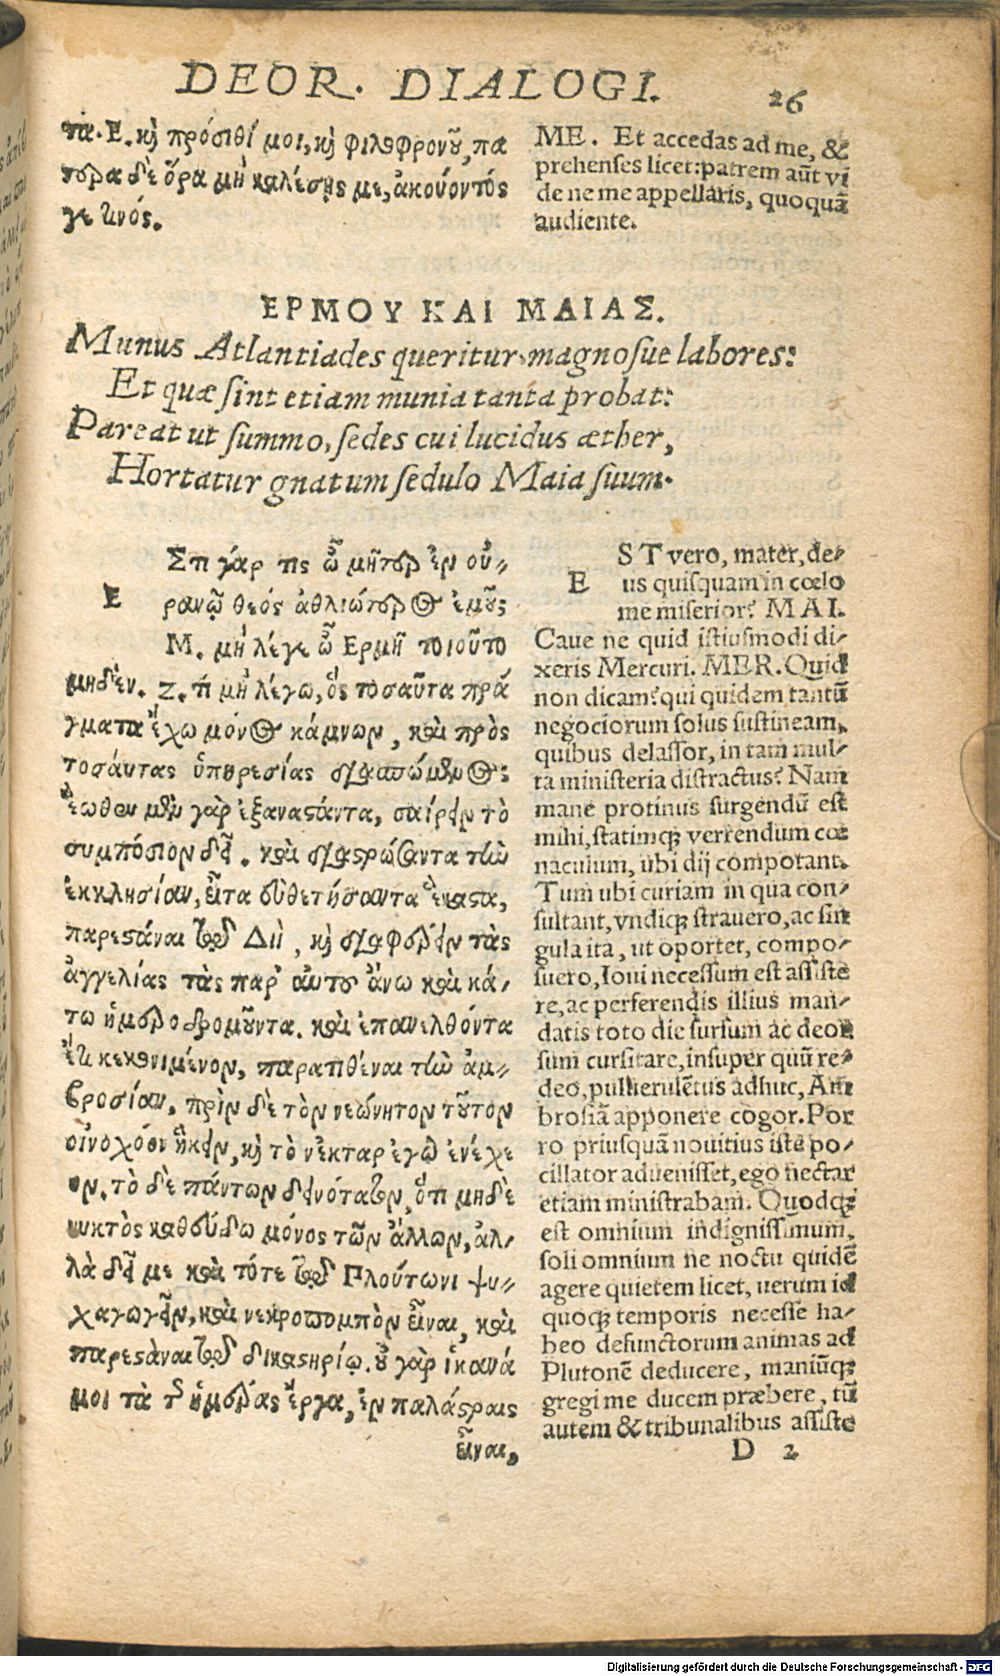 DEOR. DIALOGI.
26
τα. Ε. καὶ πρόσιθί μοι, καὶ φιλοφρονοῦ, πα
τέρα δὲ ὅρα μὴ καλέσῃς με, ἀκούοντός
γε τινός.
ΕΡΜΟΥ ΚΑΙ ΜΑΙΑΣ.
Munus Atlantiades queritur, magnosue labores:
Et quæ sint etiam munia tanta probat:
Pareat ut summo, sedes cui lucidus æther,
Hortatur gnatum sedulo Maia suum.
Εστι γάρ τις ὦ μῆτερ ἐν οὐ-
ρανῷ θεός ἀθλιώτερος ἐμοῦς
Μ. μὴ λέγε ὦ Ερμῆ τοιοῦτο
μηδέν. Ζ. τί μὴ λέγω, ὃς τοσαῦτα πρά
γματα ἔχω μόνος κάμνων, καὶ πρὸς
τοσάυτας ὑπηρεσίας διασπώμενος;
ἕωθεν μὲν γὰρ ἐξαναστάντα, σαίρειν τὸ
συμπόσιον δεῖ. καὶ διαστρώσαντα τὴν
ἐκκλησίαν, εἶτα εὐθετήσαντα ἕκαστα,
παρεστάναι τῷ Διὶ, καὶ διαφέρειν τὰς
ἀγγελίας τὰς παρ' αὐτοῦ ἄνω καὶ κά-
τω ἡμεροδρομοῦντα. καὶ ἐπανελθόντα
ἔτι κεκονιμένον, παρατιθέναι τὴν ἀμ-
βροσίαν, πρὶν δὲ τὸν νεώνητον τοῦτον
οἰνοχόον ἥκειν, καὶ τὸ νέκταρ ἐγὼ ἐνέχε
ον. τὸ δὲ πάντων δεινότατον, ὅτι μηδὲ
νυκτὸς καθεύδω μόνος τῶν ἄλλων, ἀλ-
λὰ δεῖ με καὶ τότε τῷ Πλούτωνι ψυ-
χαγωγεῖν, καὶ νεκροπομπὸν εἶναι, καὶ
παρεστάναι τῷ δικαστηρίῳ. οὐ γὰρ ἱκανά
μοι τὰ τῆς ἡμέρας ἔργα, ἐν παλάστραις
εἶναι,
ME. Et accedas ad me, &
prehenses licet: patrem aūt vi
de ne me appellaris, quoquā
audiente.
E ST vero, mater, de-
us quisquam in cœlo
me miserior? MAI.
Caue ne quid istiusmodi di-
xeris Mercuri. MER. Quid
non dicam? qui quidem tantū
negociorum solus sustineam,
quibus delassor, in tam mul-
ta ministeria distractus? Nam
mane protinus surgendū est
mihi, statimq; verrendum cœ
naculum, ubi dij compotant.
Tum ubi curiam in qua con-
sultant, vndiq; strauero, ac sin
gula ita, ut oportet, compo-
suero, Ioui necessum est assiste
re, ac perferendis illius man-
datis toto die sursum ac deor
sum cursitare, insuper quū re-
deo, puluerulētus adhuc, Am
brosiā apponere cogor. Por
ro priusquā nouitius iste po-
cillator aduenisset, ego nectar
etiam ministrabam. Quodq;
est omnium indignissimum,
soli omnium ne noctu quidē
agere quietem licet, uerum id
quoq; temporis necesse ha-
beo defunctorum animas ad
Plutonē deducere, maniūq;
gregi me ducem præbere, tū
autem & tribunalibus assiste
D 2
Digitalisierung gefördert durch die Deutsche Forschungsgemeinschaft - DFG